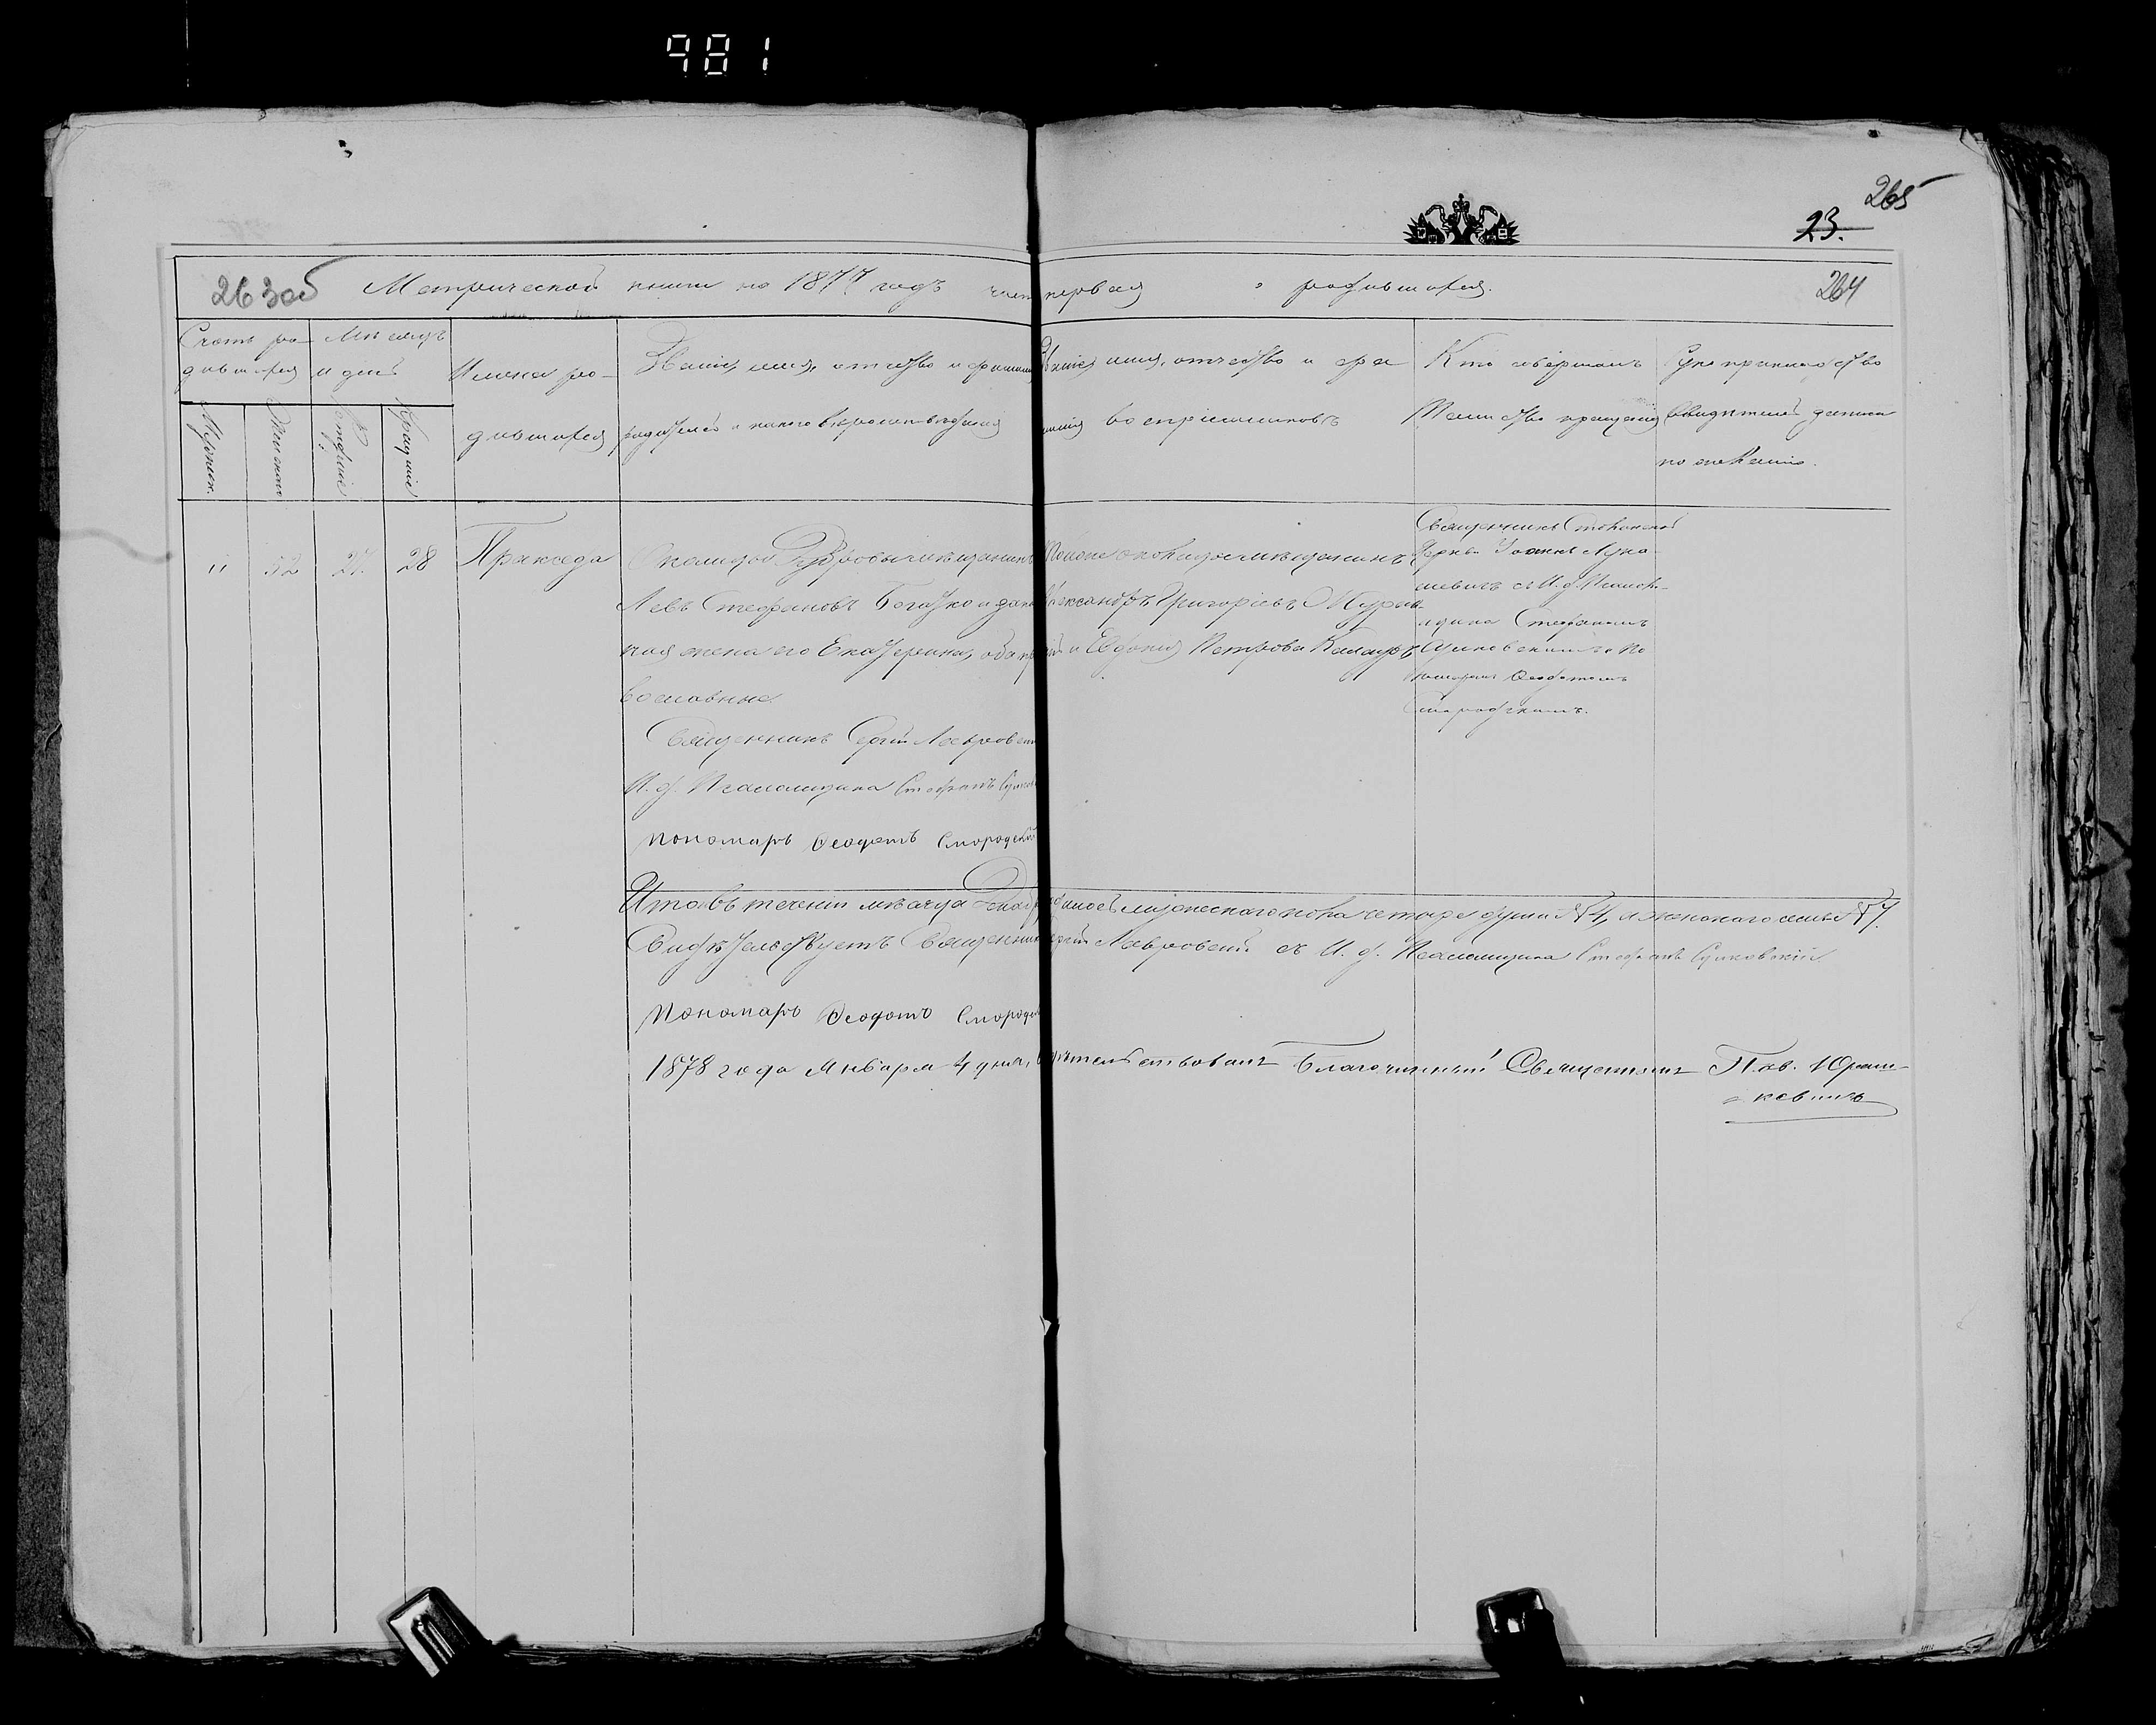 981
265
23.
263об Метрической книги на 1877 годъ часть первая о родившихся. 264
Счетъ ро-
дившихся
Мѣсяцъ
и день
Имена ро-
дившихся
Званіе, имя, отчество и фамилія
родителей и какого вѣроисповѣданія
Званіе, имя, отчество и фа
милія воспріемниковъ
Кто совершалъ
Таинство крещенія
Рукоприкладство
свидѣтелей записи
по желанію.
Мужск.
Женск.
Рожденіе
Крещеніе
"
52
27.
28
Пракседа
мѣщанинъ
Левъ Стефановъ и закон
ная жена его Екатерина, оба пра
вославные.
Священникъ Сергій Лавровскій
И. д. Псаломщика Стефанъ
Пономаръ Феодотъ Смородскій
мѣщанинъ
Александръ Григоріевъ
и Евдокія Петрова
Священникъ
церкви Іоаннъ Лука-
шевичъ съ И. д. Псалом-
щика Стефаномъ
и По
номаремъ Феодотомъ
Смородскимъ.
Итого въ теченіи мѣсяца Декабря родилось мужескаго пола четыре души № 4, и женскаго семь № 7.
Свидѣтельствуетъ Священникъ Сергій Лавровскій съ И. д. Псаломщика Стефанъ
Пономаръ Феодотъ Смородскій
1878 года Января 4 дня, свидѣтельствовалъ Благочинный Священникъ